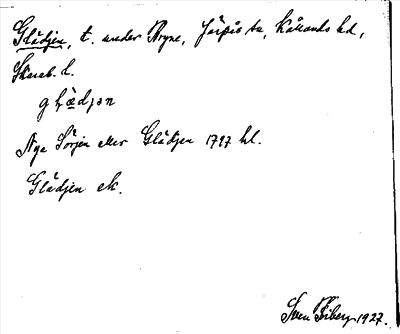 Glädjen, t. under Bryne, Järpås sn, Kållands hd,
Skarab. l.
Nya Sörjen eller Glädjen 1797 hl.
Glädjen ek.
Sven Biberg 1927.